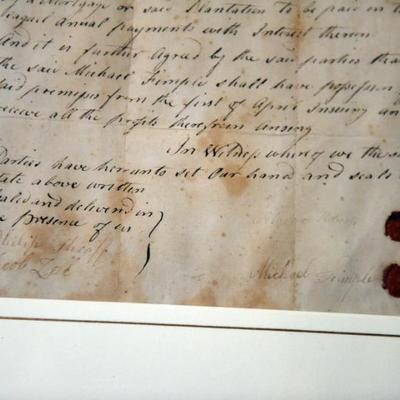 of a Mortgage or said Plantation to be paid in t
Equael anual payments with Interest theron
And it is further Agreed by the said parties tha
the said Michael Fimple shall have possession
said premeses from the first of April Insuing an
receive all the profits therefrom arising
In Witness whereof we the s
Parties have hereunto set our hand and seals
date above written
ealed and deliverd in
e presence of us
Michael Fimple